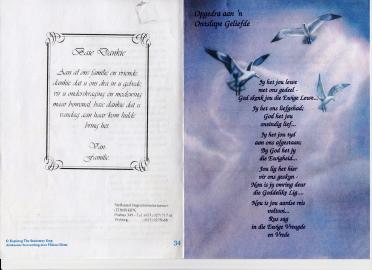 Baie Dankie
Aan al ons familie en vriende
dankie dat u ons dra in u gebede,
vir u ondersteuning en medelewing
maar bowenal, baie dankie dat u
vandag aan haar kom hulde
bring het.
Van
Familie
34
Opgedra aan 'n
Ontslape Geliefde
Jy het jou lewe
met ons gedeel -
God skenk jou die Ewige Lewe...
Jy het ons liefgehad;
God het jou
oneindig lief...
Jy het jou tyd
aan ons afgestaan;
By God het jy
die Ewigheid...
Jou lig het hier
vir ons geskyn -
Nou is jy omring deur
die Goddelike Lig...
Nou is jou aardse reis
voltooi...
Rus sag
in die Ewige Vreugde
en Vrede